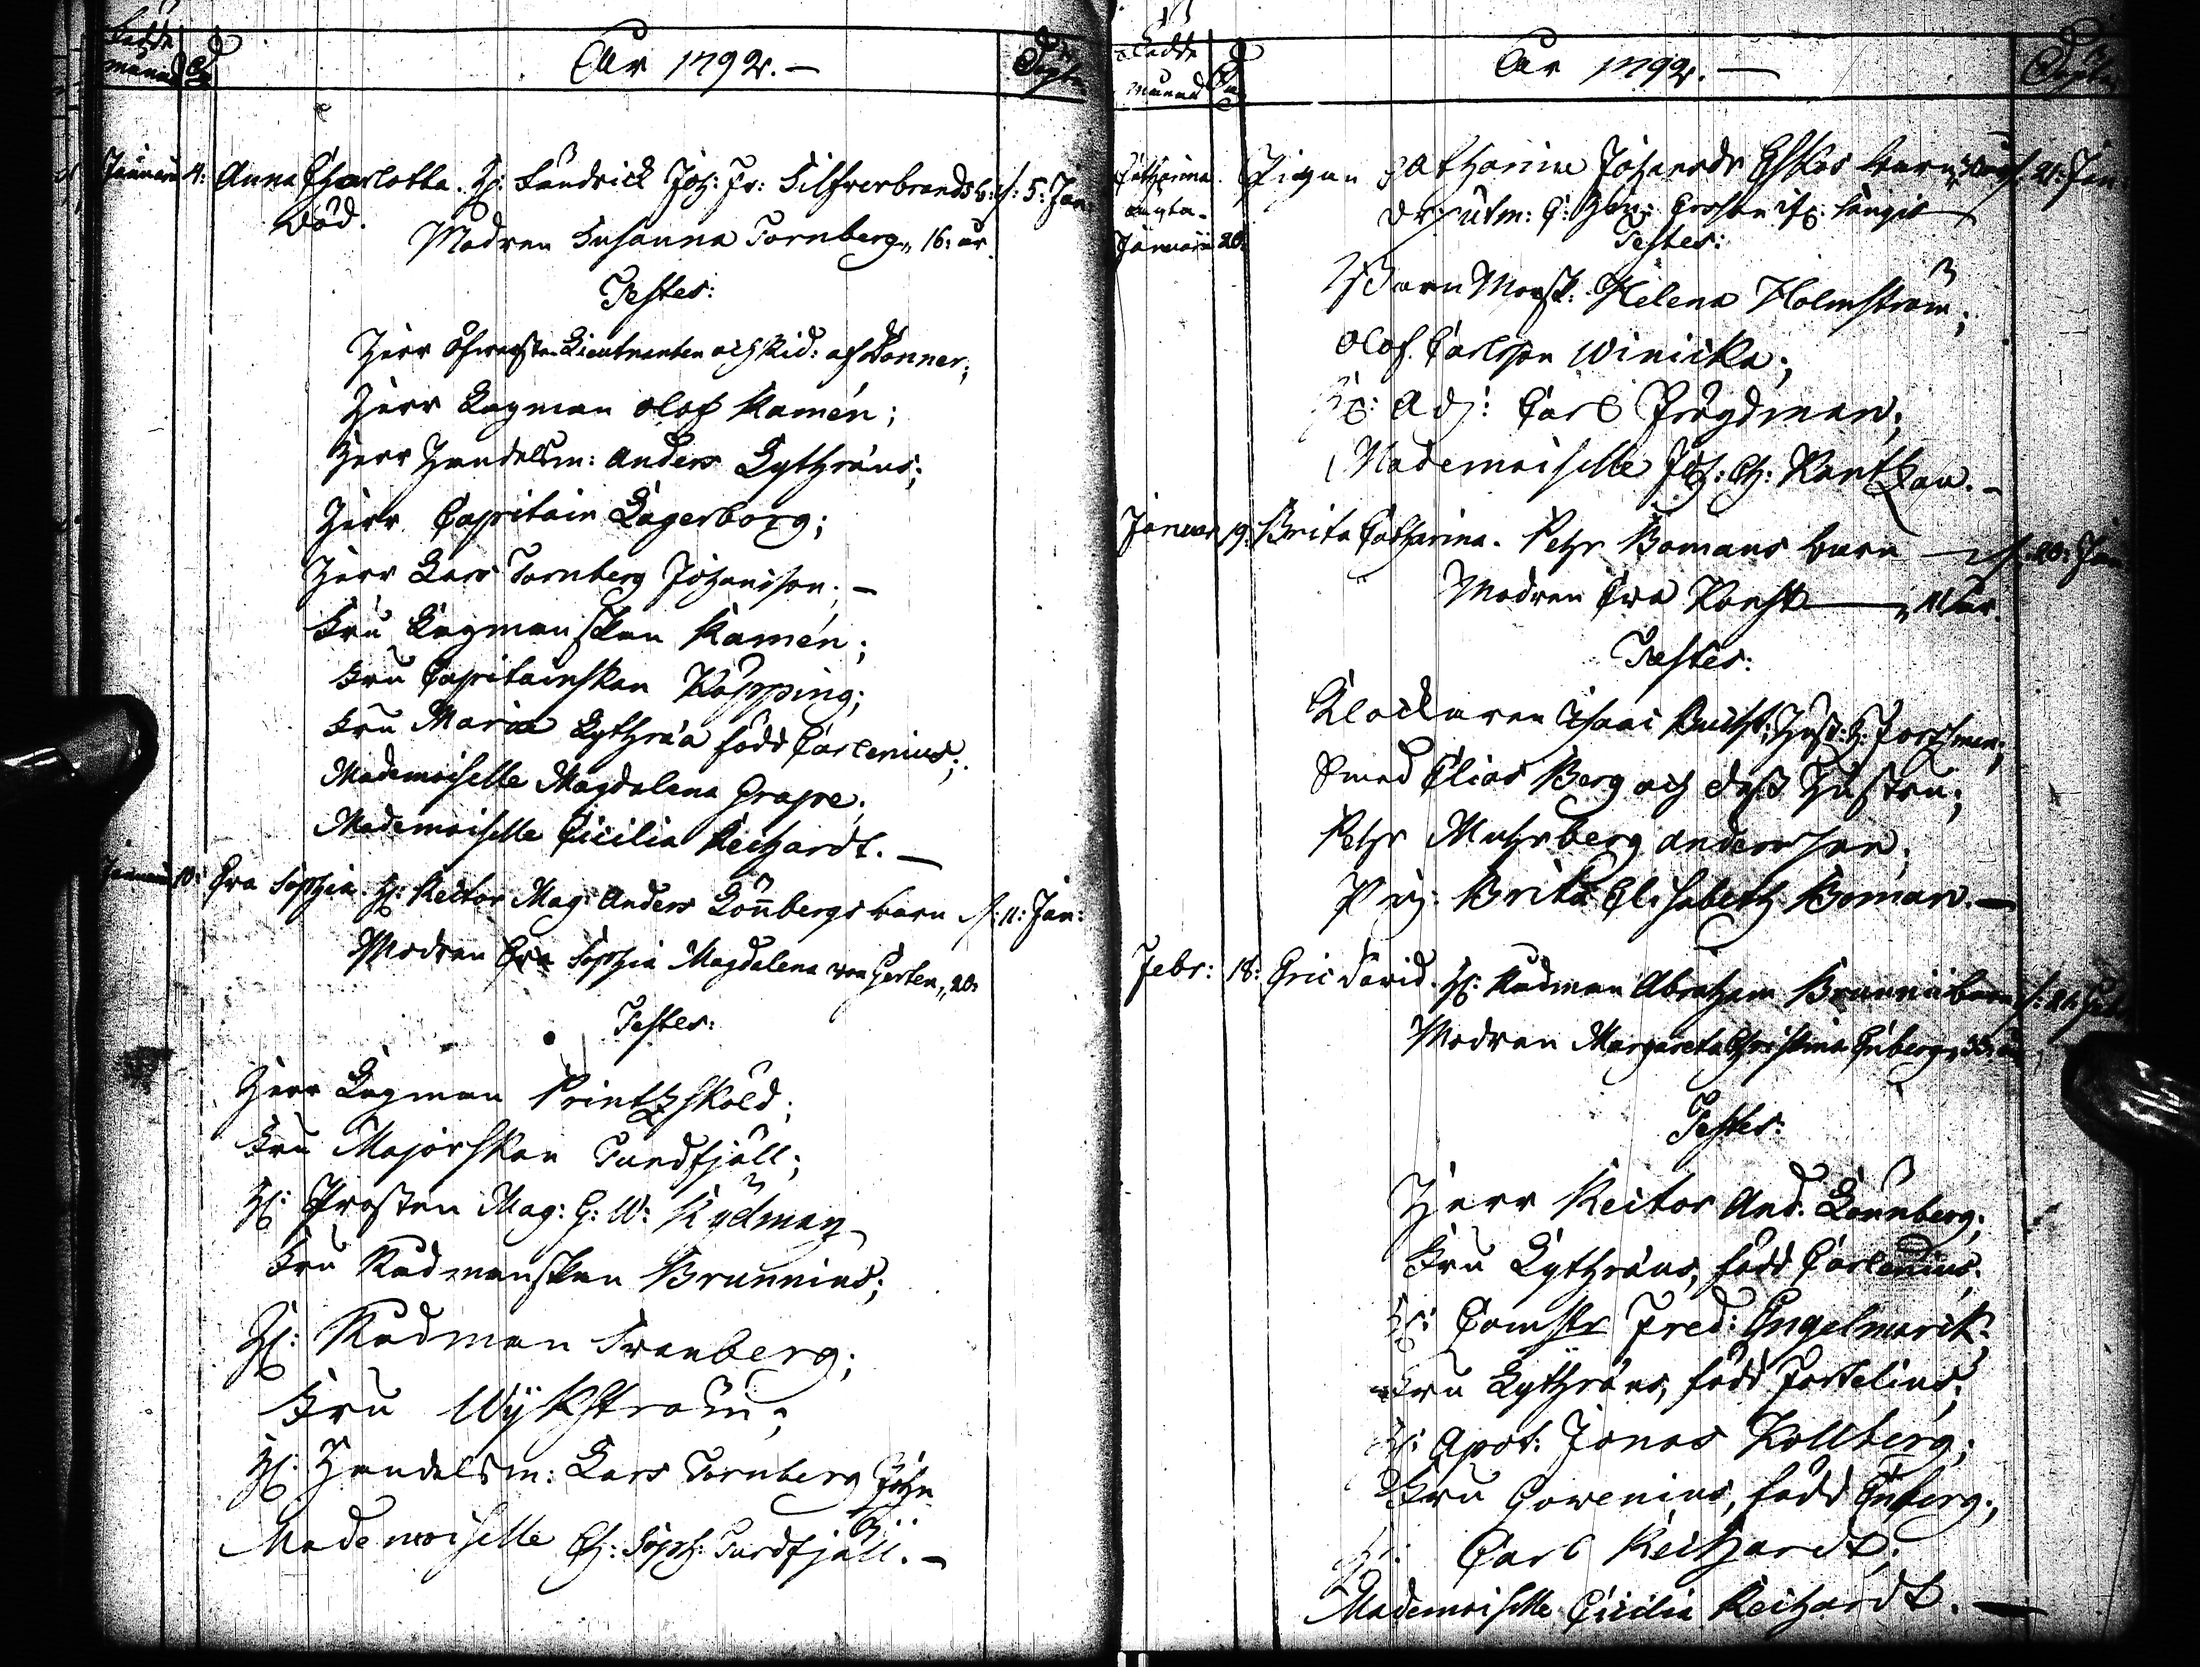 Födde
månad Dag
År 1792. —
Döpte
Januari 4: Anna Charlotta. H: Landrick Joh: Fr: Silfverbrands b: d: 5: Jan:
död.
Modren Susanna Tornberg „ 16: år.
Testes:
Herr Öfwerste Lieutnanten och Rid: af Donner;
Herr Lagman Olof Kamén;
Herr Handelsm: Anders Lythræus;
Herr Capitain Lagerborg;
Herr Lars Tornberg Johansson; —
Fru Lagmanskan Kamén;
Fru Capitainskan Köpping;
Fru Maria Lythræa född Carlenius;
Mademoiselle Magdalena Grape;
Mademoiselle Cicilia Reichardt. —
Januari 10: Eva Sophia. H: Rector Mag: Anders Lönnbergs barn d: 11: Jan:
Modren Eva Sophia Magdalena von Gerten „ 20:
Testes:
Herr Lagman Printzsköld;
Fru Majorskan Tundfjäll;
H: Prosten Mag: G: W: Rydman
Fru Rådmanskan Brunnius;
H: Rådman Svanberg;
Fru Wykström;
H: Handelsm: Lars Tornberg Joh:n
Mademoiselle Ch: Soph: Tundfjäll. —
Födde
månad Dag
År 1792. —
Döpte
Catharina. Pigan Catharina Johansdr barn d: 21: Jan:
Januarii 20:
Testes:
Barn Morsk: Helena Holmström;
Olof Carlsson Winicka;
H: Adj: Carl Frögdman;
Mademoiselle Joh: Ch: Rantzau. —
Januar: 19: Brita Catharina. Pehr Bomans barn — d: 20: Jan:
Modren Eva — „ år.
Testes:
Klockaren Isaac
Smed Elias Berg och dess Hustru;
Pehr Muhrberg Andersson;
Pig: Brita Elisabeth Boman. —
Febr: 18: Eric David. H: Rådman Abraham Brunnii barn d: 21: Feb:
Modren Margareta Christina Enberg
Testes:
Herr Rector And. Lönnberg;
Fru Lythræus, född Carlenius;
H: Fred: Engelmarck;
Fru Lythræus, född Forselius;
H: Apot: Jonas Kollberg;
Fru Gowenius, född Enberg;
H: Carl Reichardt;
Mademoiselle Cicilia Reichardt. —